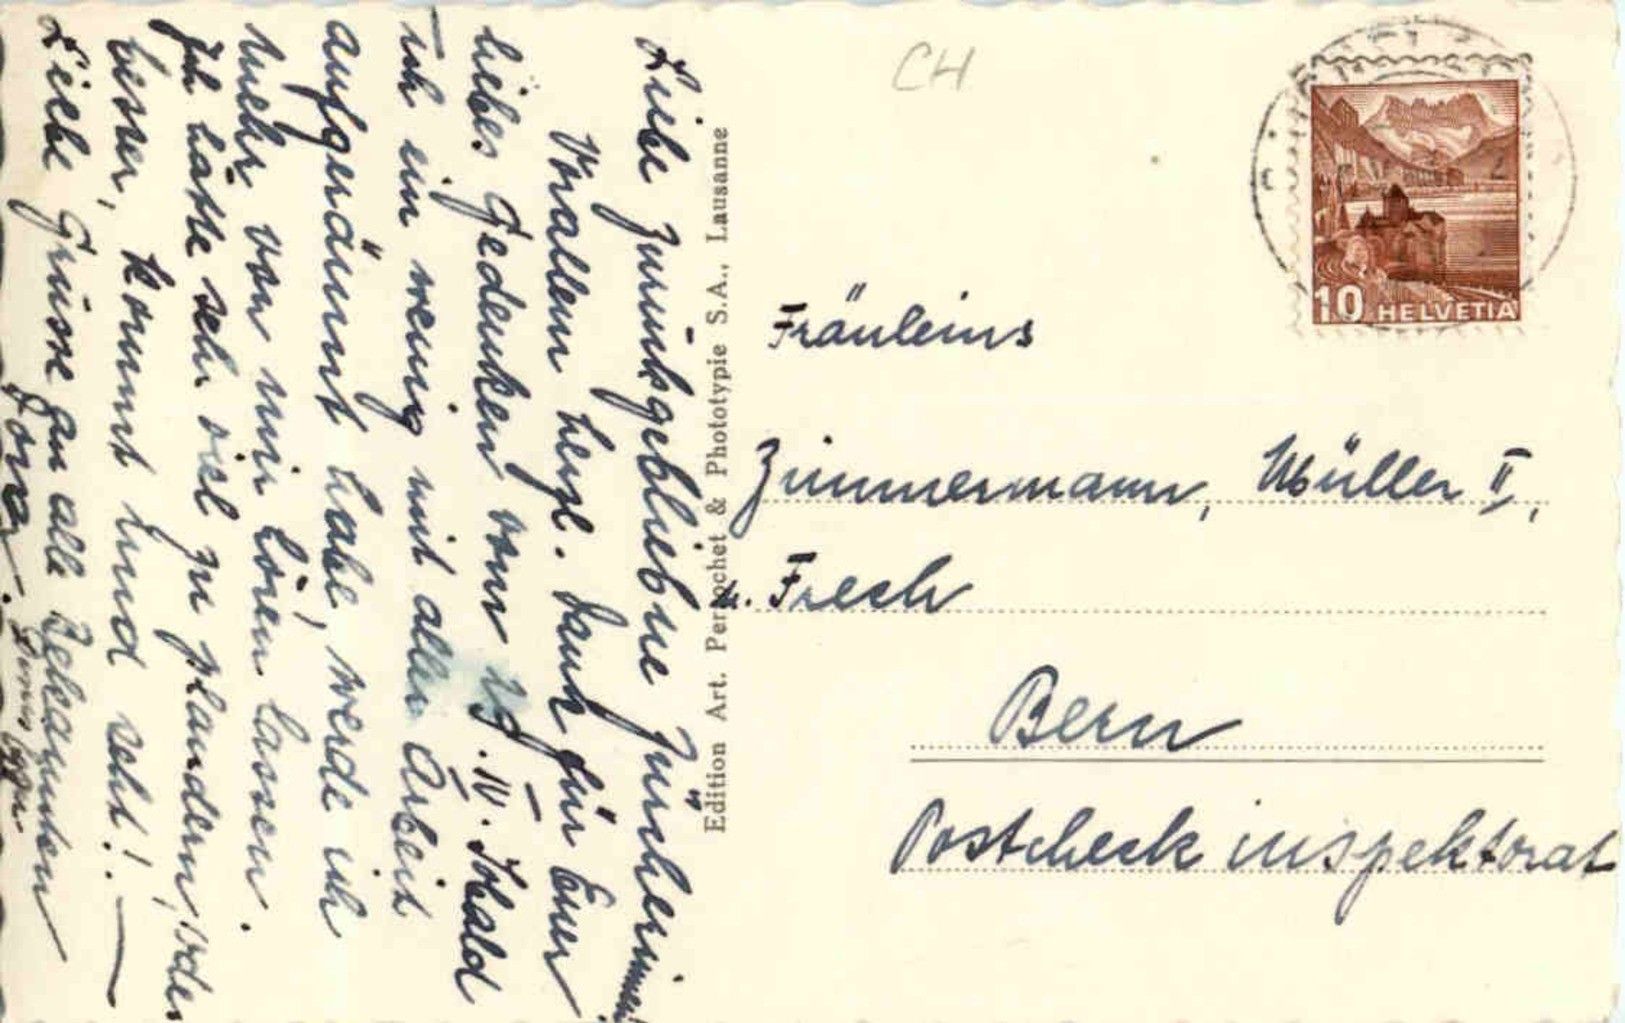 Liebe zurückgebliebne Zürcherinnen!
Vorallem herzl. Dank für Euer
liebes Gedenken vom 29. IV. Sobald
ich ein wenig mit aller Arbeit
aufgeräumt habe, werde ich
mehr von mir hören lassen.
Ich hätte sehr viel zu plaudern, oder
besser, kommt und seht! —
Liebe Grüsse an alle Bekannten
Edition Art. Perrochet & Phototypie S.A., Lausanne
CH
10 HELVETIA
Fräuleins
Zimmermann, Müller II,
u. Frech
Bern
Postcheckinspektorat